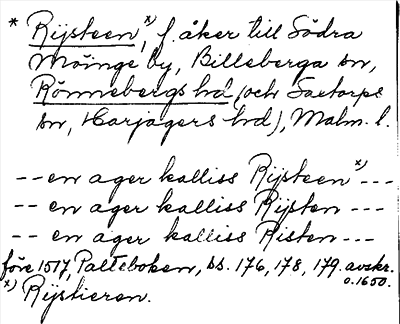 * Rijsteen x), f. åker till Södra
Möinge by, Billeberga sn,
Rönnebergs hd (och Saxtorps
sn, Harjagers hd), Malm. l.
-- en ager kalliss Rijsteen x) ---
-- en ager kalliss Rijsten ---
-- en ager kalliss Risten ---
före 1517, Palteboken, ss. 176, 178, 179. avskr.
o. 1650.
x) Rijstieren.